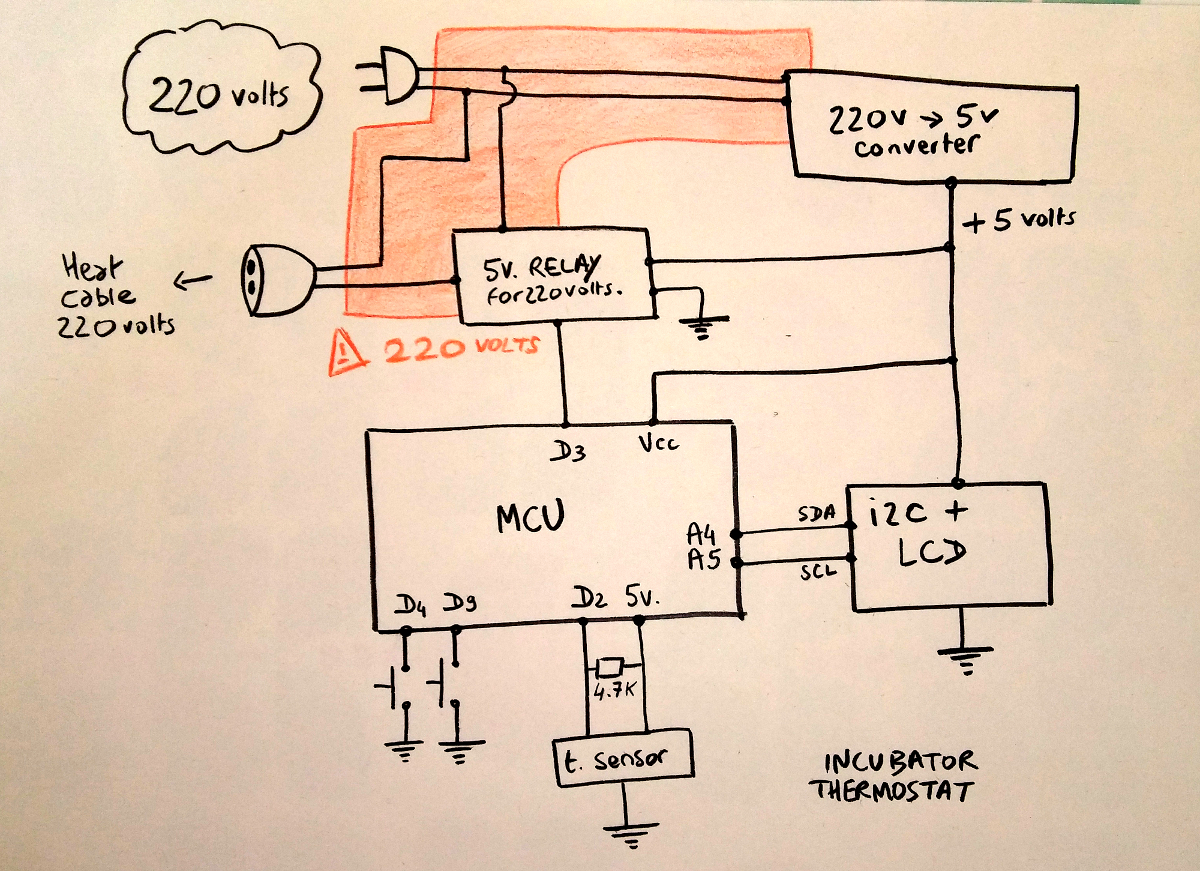 220 volts
220v → 5v
converter
+5 volts
Heat
cable
220 volts
5V. RELAY
For 220 volts.
⚠ 220 VOLTS
D3
Vcc
MCU
A4
A5
SDA
SCL
i2c +
LCD
D4 D9 D2 5v.
4.7K
t. sensor
INCUBATOR
THERMOSTAT